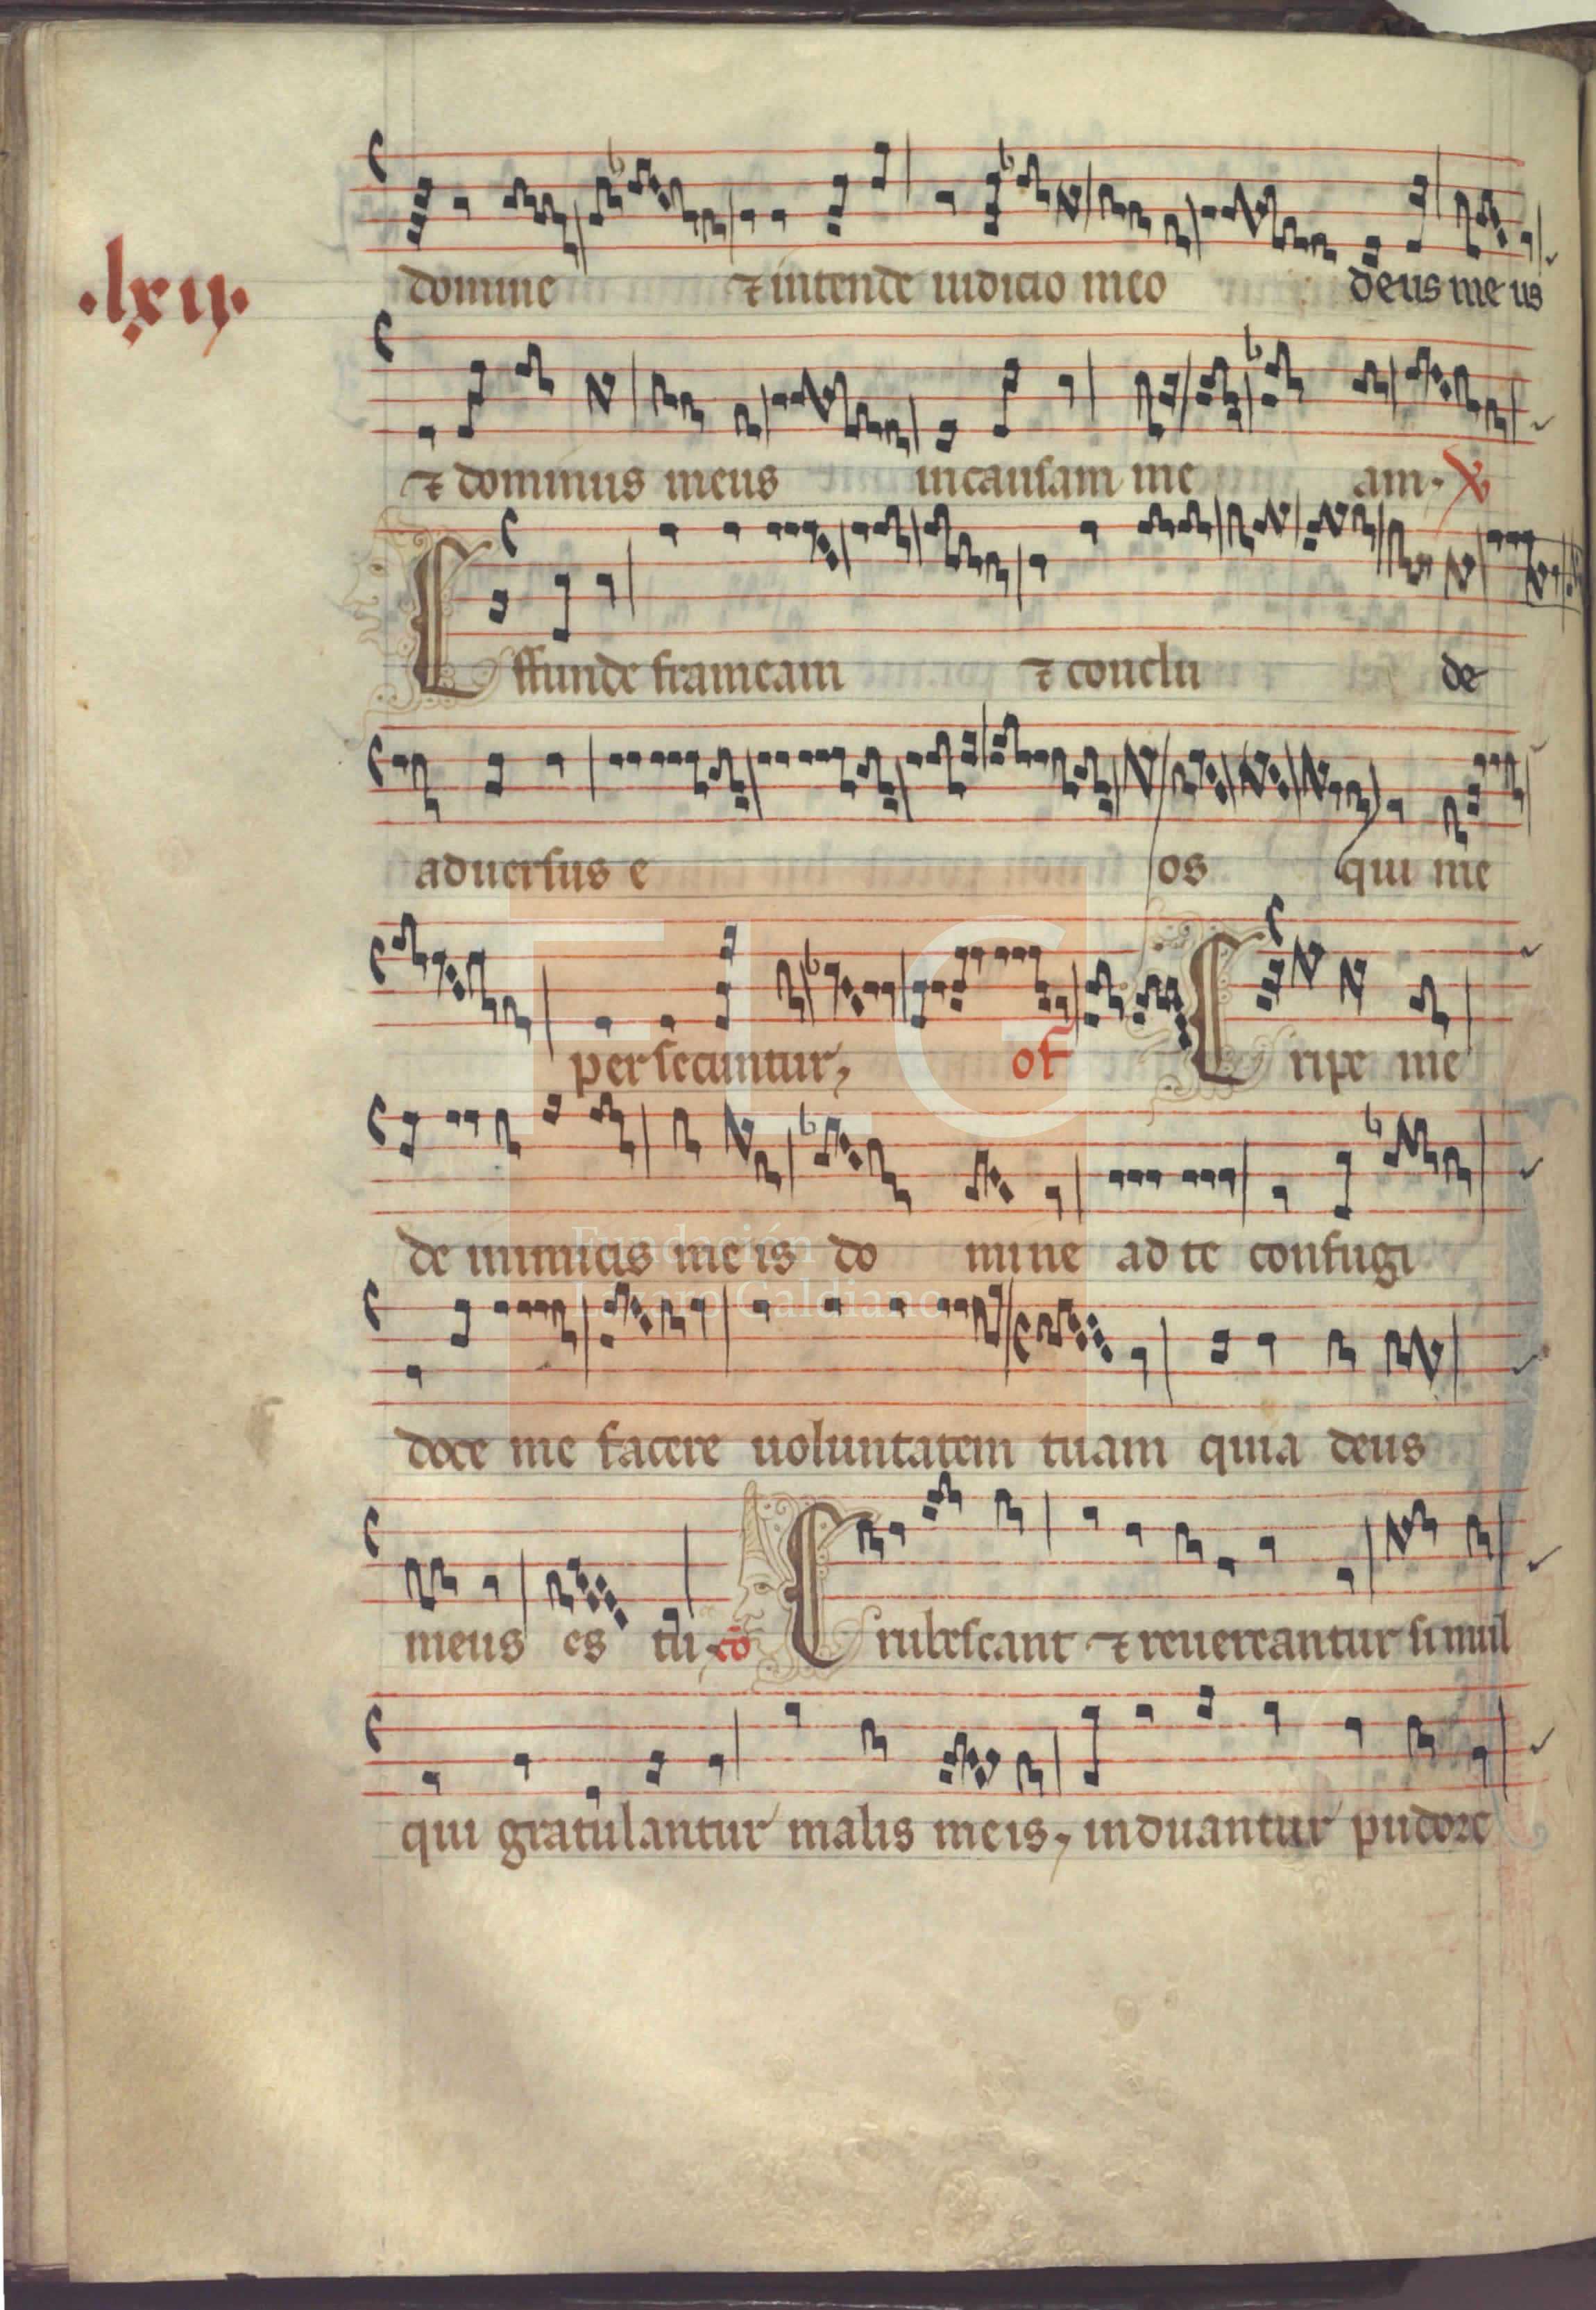 ·lxij·
domine ⁊ intende iudicio meo deus me us
⁊ dominus meus in causam me am. ℣
Effunde frameam ⁊ conclu de
aduersus e os qui me
persecuntur, of Eripe me
de inimicis me is do mine ad te confugi
doce me facere uoluntatem tuam quia deus
meus es tu. cō Erubescant ⁊ reuereantur simul
qui gratulantur malis meis, induantur pudore
FLG
Fundación
Lázaro Galdiano